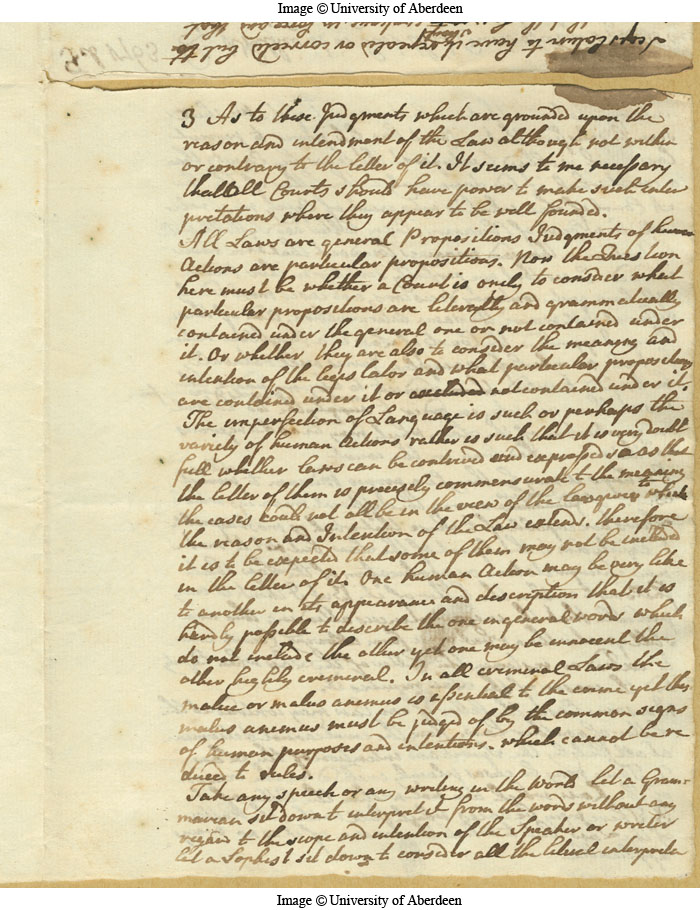 Image © University of Aberdeen
3 As to these Judgments which are grounded upon the
reason and intendment of the Law although not within
or contrary to the letter of it. It seems to me necessary
that all Courts should have power to make such inter
pretations where they appear to be well founded.
All Laws are general Propositions Judgments of human
Actions are particular propositions. Now the Question
here must be whether a Court is onely to consider what
particular propositions are literally and grammatically
contained under the general one or not contained under
it. Or whether they are also to consider the meaning and
intention of the legislator and what particular propositions
are contained under it or not contained under it.
The imperfection of Language is such or perhaps the
variety of human Actions rather is such that it is very doubt
full whether laws can be contrived and expressed so as that
the letter of them is precisely commensurate to the meaning
the cases could not all be in the view of the lawgiver to which
the reason and Intention of the Law extends. therefore
it is to be expected that some of them may not be included
in the letter of it. One human Action may be very like
to another in its appearance and description that it is
hardly possible to describe the one in general words which
do not include the other yet one may be innocent the
other highly criminal. In all criminal Laws the
malice or malus animus is essential to the crime yet this
malus animus must be judged of by the common signs
of human purposes and intentions. which cannot be re
duced to rules.
Take any speech or any writing in the World let a Gram=
marean sit down to interpret it from the words without any
regard to the scope and intention of the Speaker or writer
let a Sophist sit down to consider all the literal interpreta
Image © University of Aberdeen